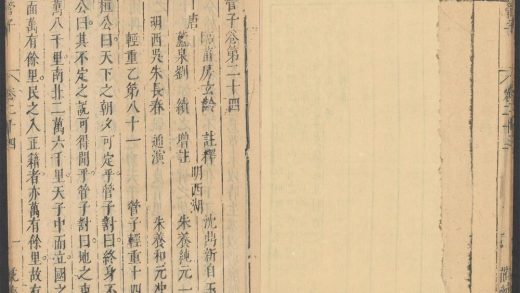 卷二十三
管子卷第二十四
唐 臨菑房玄齡 註釋 沈鼎新自玉
蘆泉劉 績 增註 明西湖 朱養純元一
明西吳朱長春 通演 朱養和元冲
輕重乙第八十一 管子輕重十四
桓公曰天下之朝夕可定乎管子對曰終身不
公曰其不定之說可得聞乎管子對曰地之東
萬八千里南北二萬六千里天子中而立國之
面萬有餘里民之入正籍者亦萬有餘里故有
管子 卷二十四 一